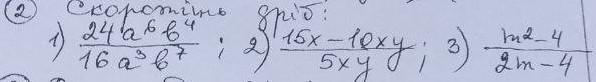 ② Скоротіть дріб:
1) 24a⁶b⁴/16a³b⁷ ; 2) 15x−10xy/5xy ; 3) m²−4/2m−4